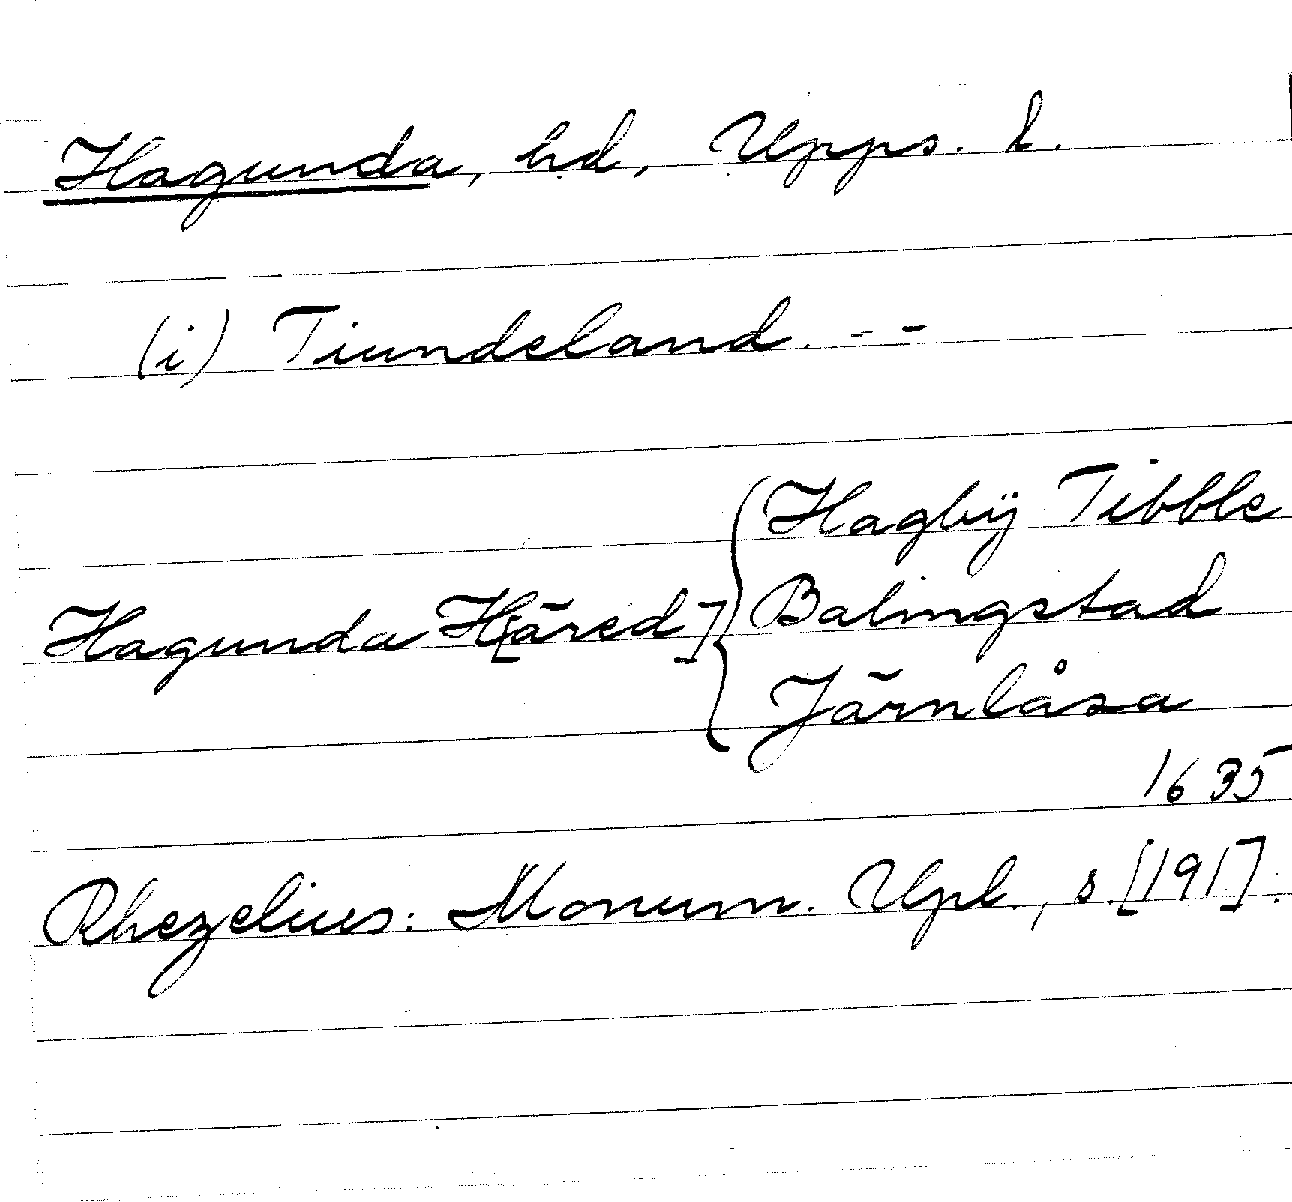 Hagunda, hd, Upps. l.
(i) Tiundeland. - -
Hagbÿ Tibble
Hagunda H[äred] { Balingstad
Järnlåsa
1635
Rhezelius: Monum. Upl., s. [191].